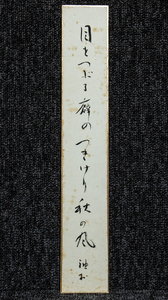 目をつぶる癖のつきけり秋の風